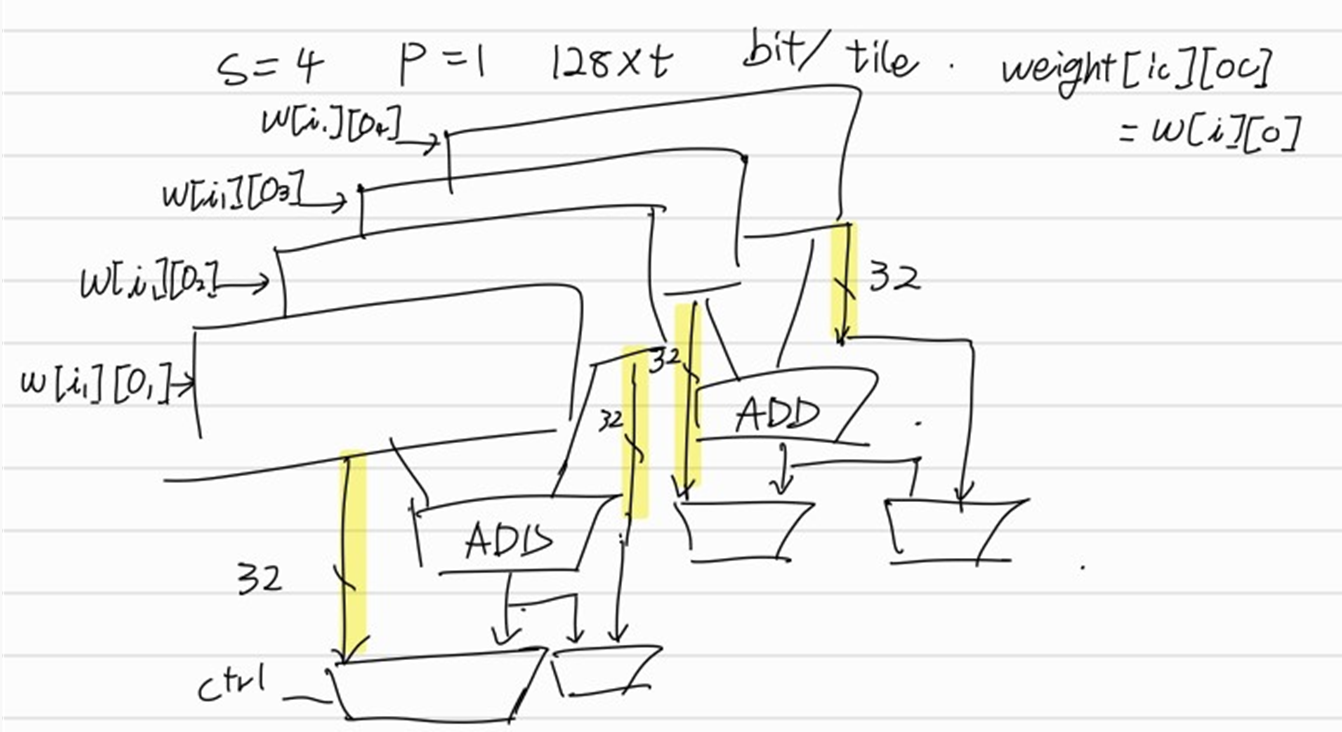 S=4 P=1 128×t bit/ tile. weight[ic][oc]
= w[i][o]
w[i₁][o₄]
w[i₁][o₃]
w[i₁][o₂]
w[i₁][o₁]
32
32
32
ADD
ADD
32
ctrl